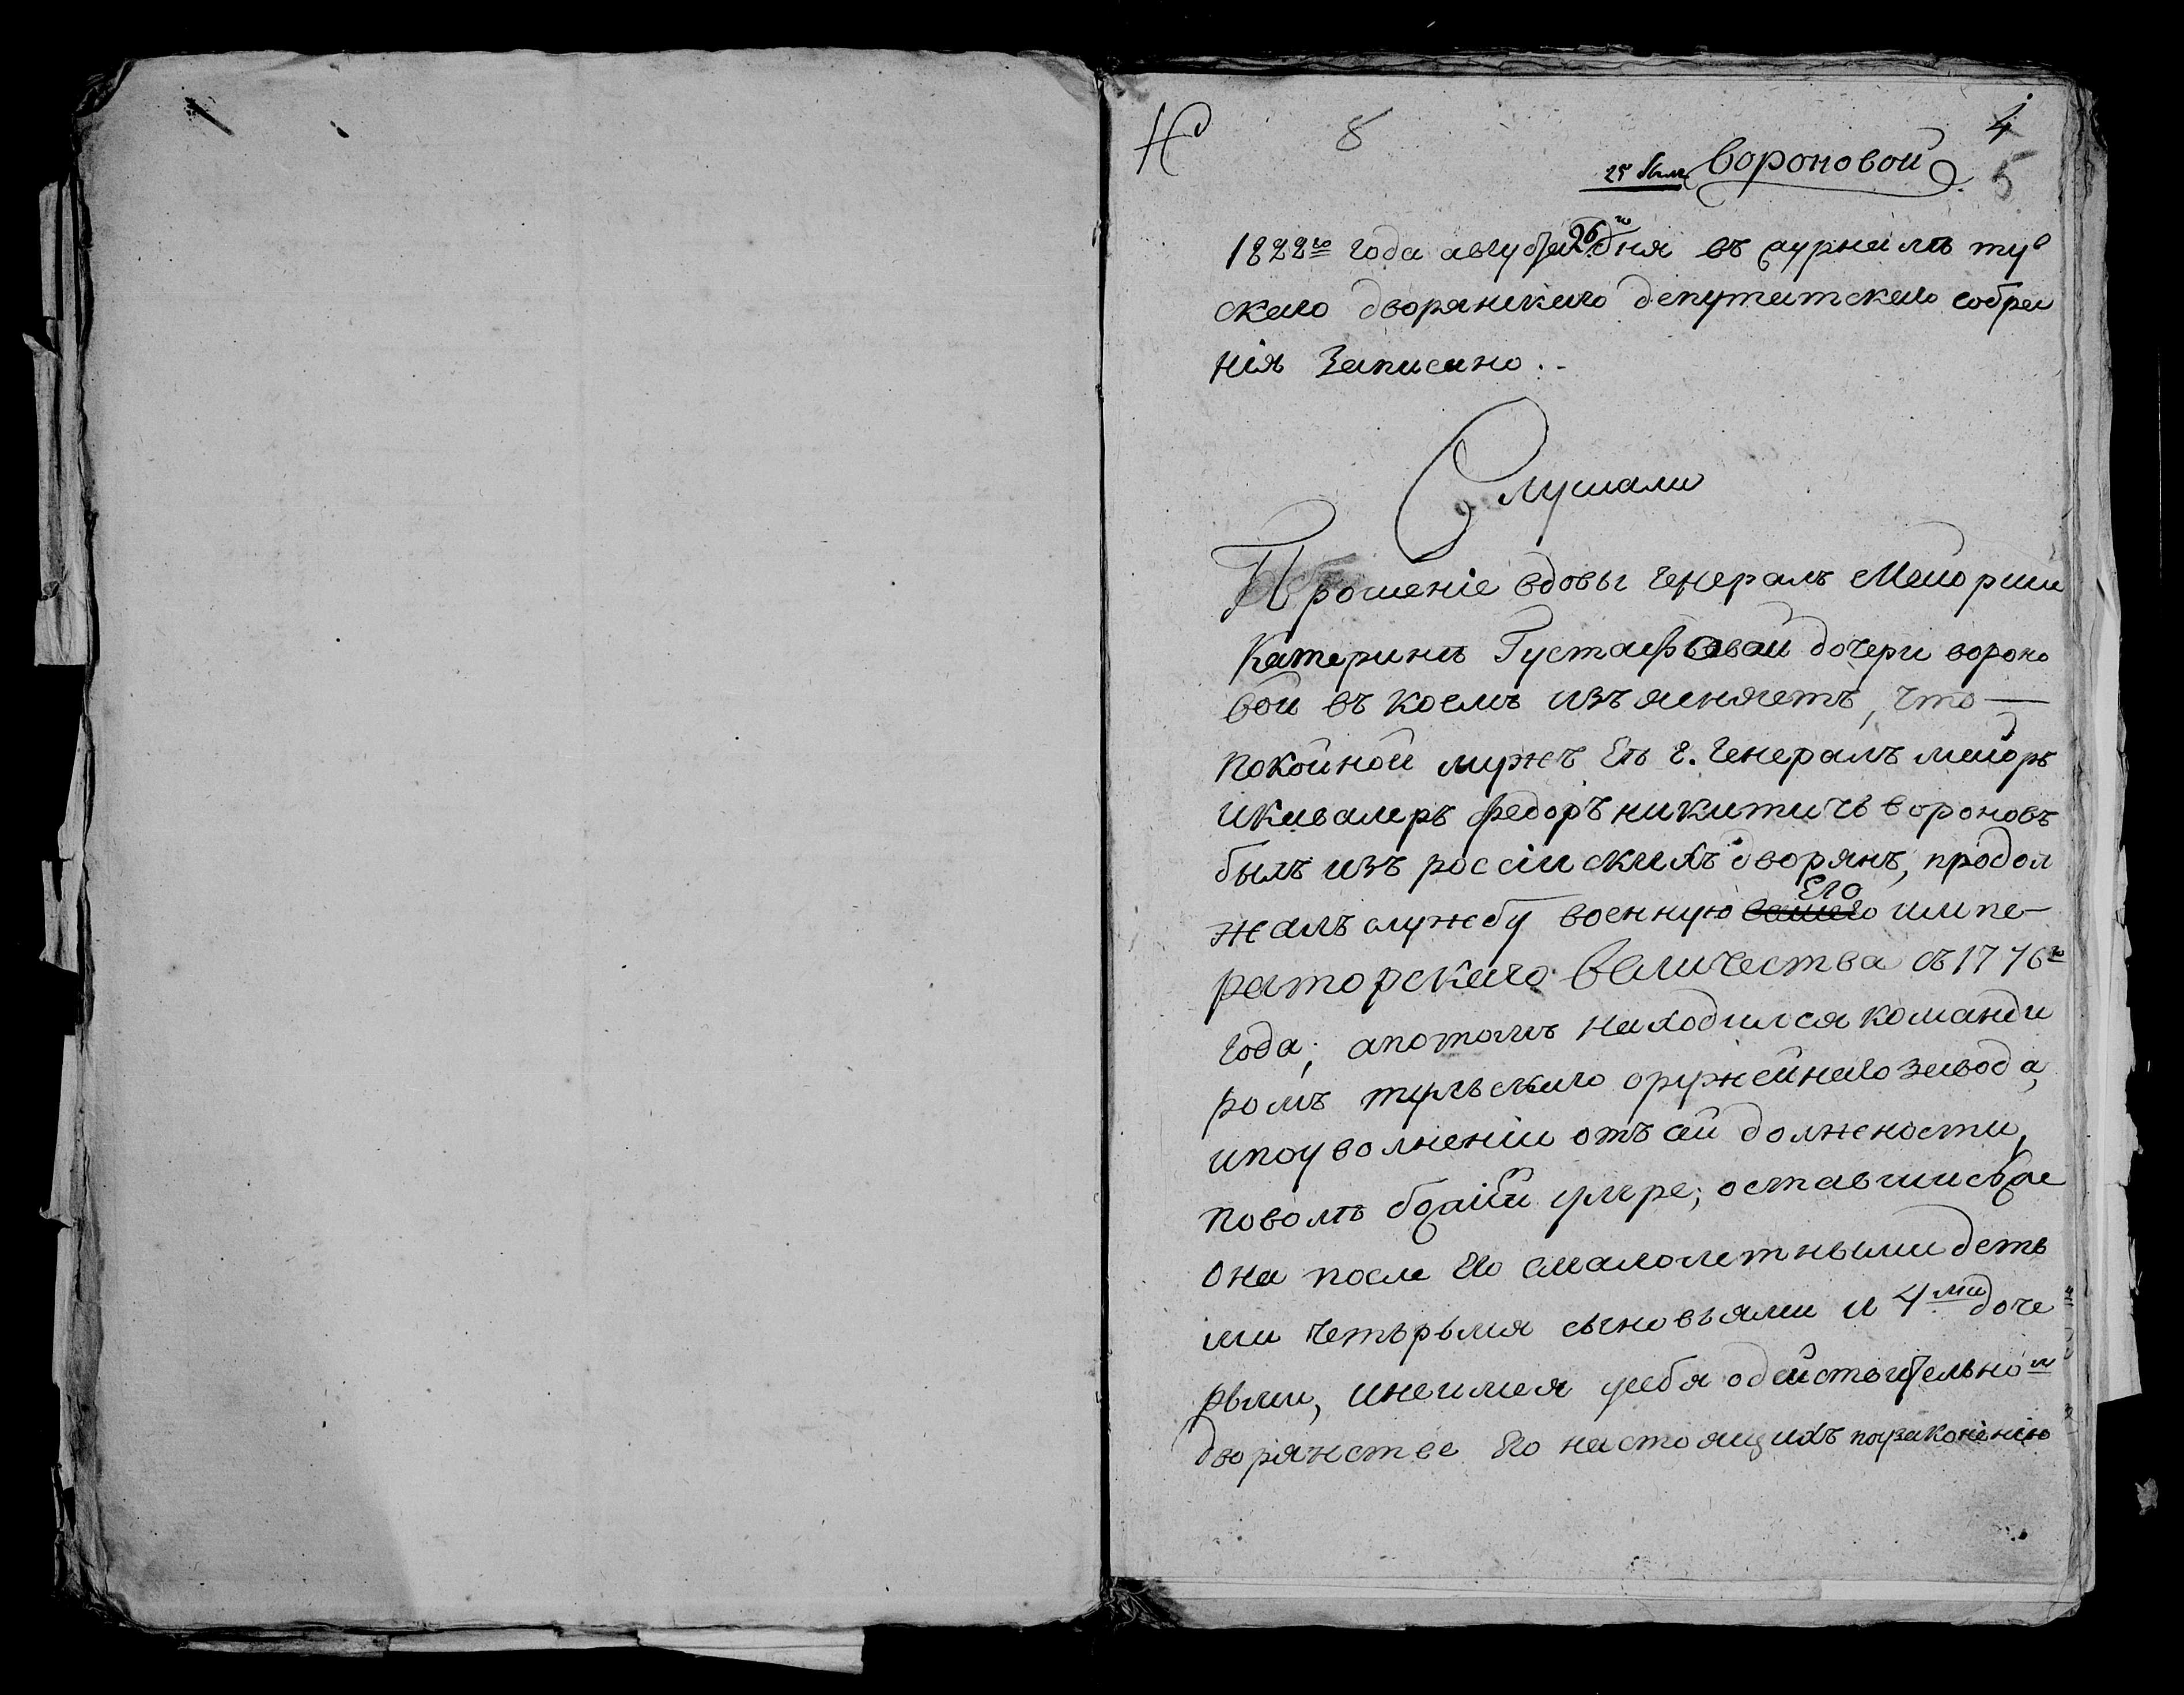 8
4
Вороновой
5
1822го года августа 26го дня въ журналѣ тул
скаго дворянскаго депутатскаго собра
нія Записано..
Слушали
Прошеніе вдовы генералъ Маіорши
Катерины Густафовой дочери вороно
вой въ коемъ изъясняетъ, что —
покойной мужъ Ея г. Генералъ маіоръ
икавалеръ федоръ никитичь вороновъ
былъ изъ россіискихъ дворянъ, продол
жалъ службу военную вашего Его импе-
раторскаго величества съ 1776го
года; апотомъ находился команди
ромъ тульскаго оружейнаго завода,
ипоуволненіи отъ сей должности,
поволѣ божіей умре; оставшись же
Она после Его смалолетными деть
ми четырьмя сыновьями и 4ми доче
рьми, инеимея усебя одействительном
дворянстве Его настоящихъ поузаконенію